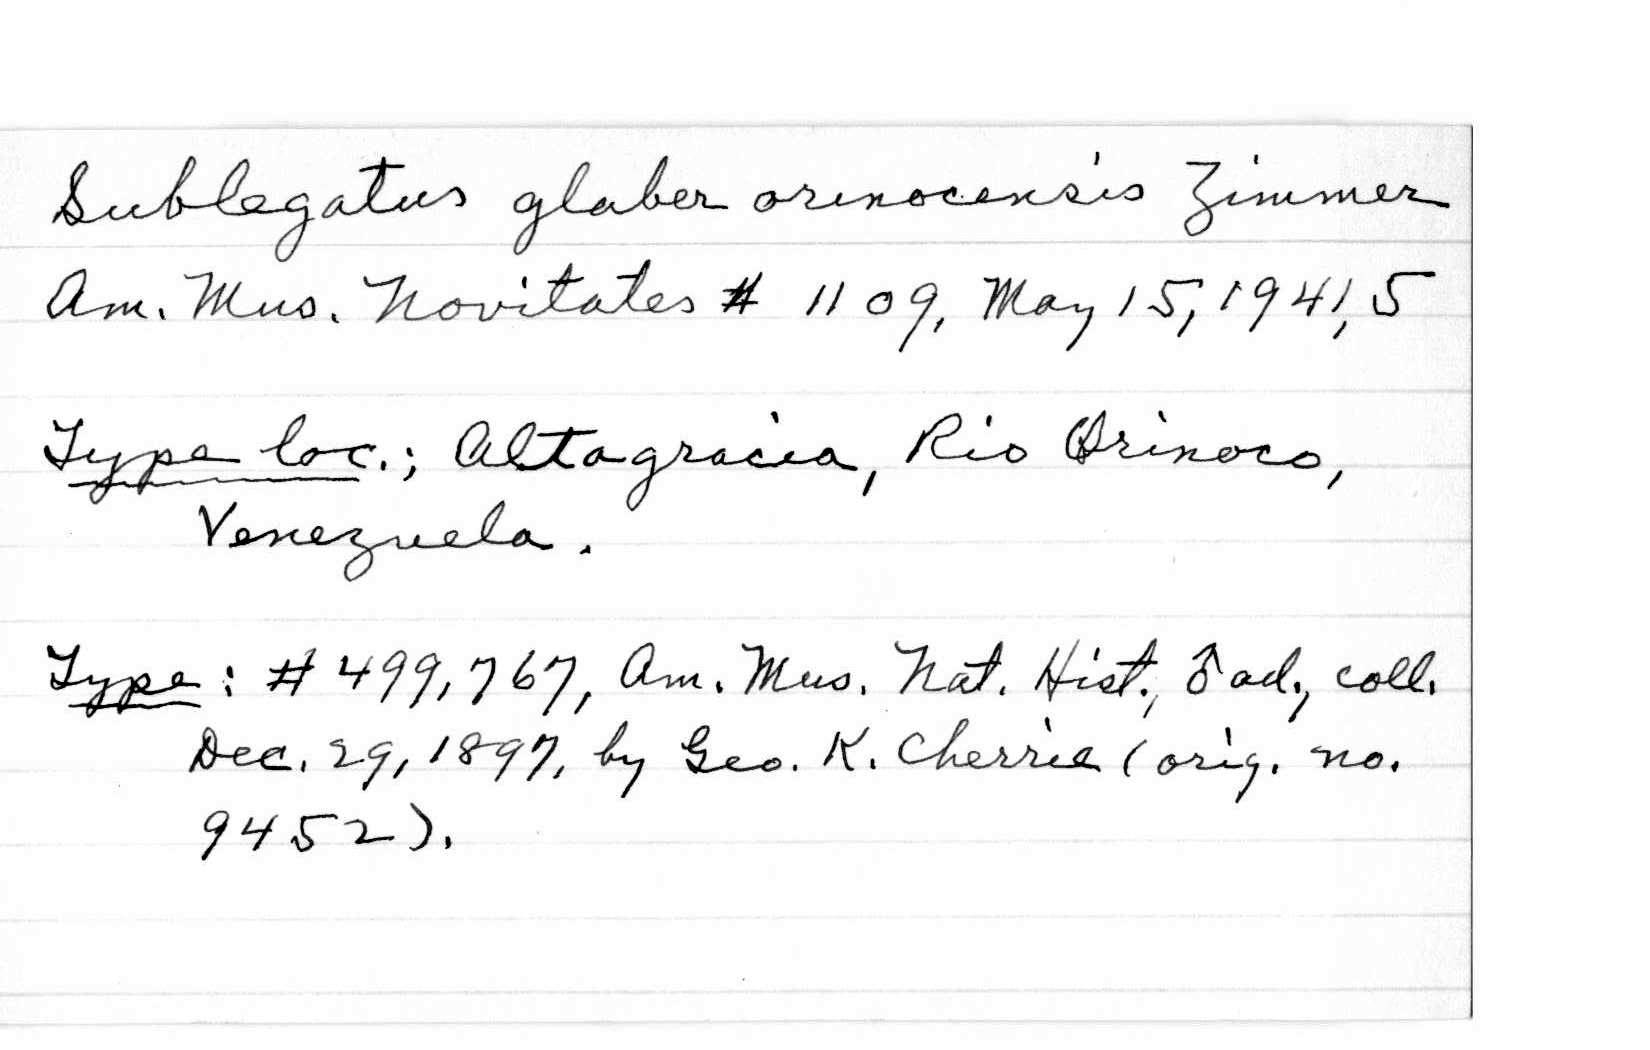 Sublegatus glaber orinocensis Zimmer
Am. Mus. Novitates # 1109, May 15, 1941, 5
Type loc.; Altagracia, Rio Orinoco,
Venezuela.
Type: # 499,767, Am. Mus. Nat. Hist., ♂ ad., coll.
Dec. 29, 1897, by Geo. K. Cherrie (orig. no.
9452).